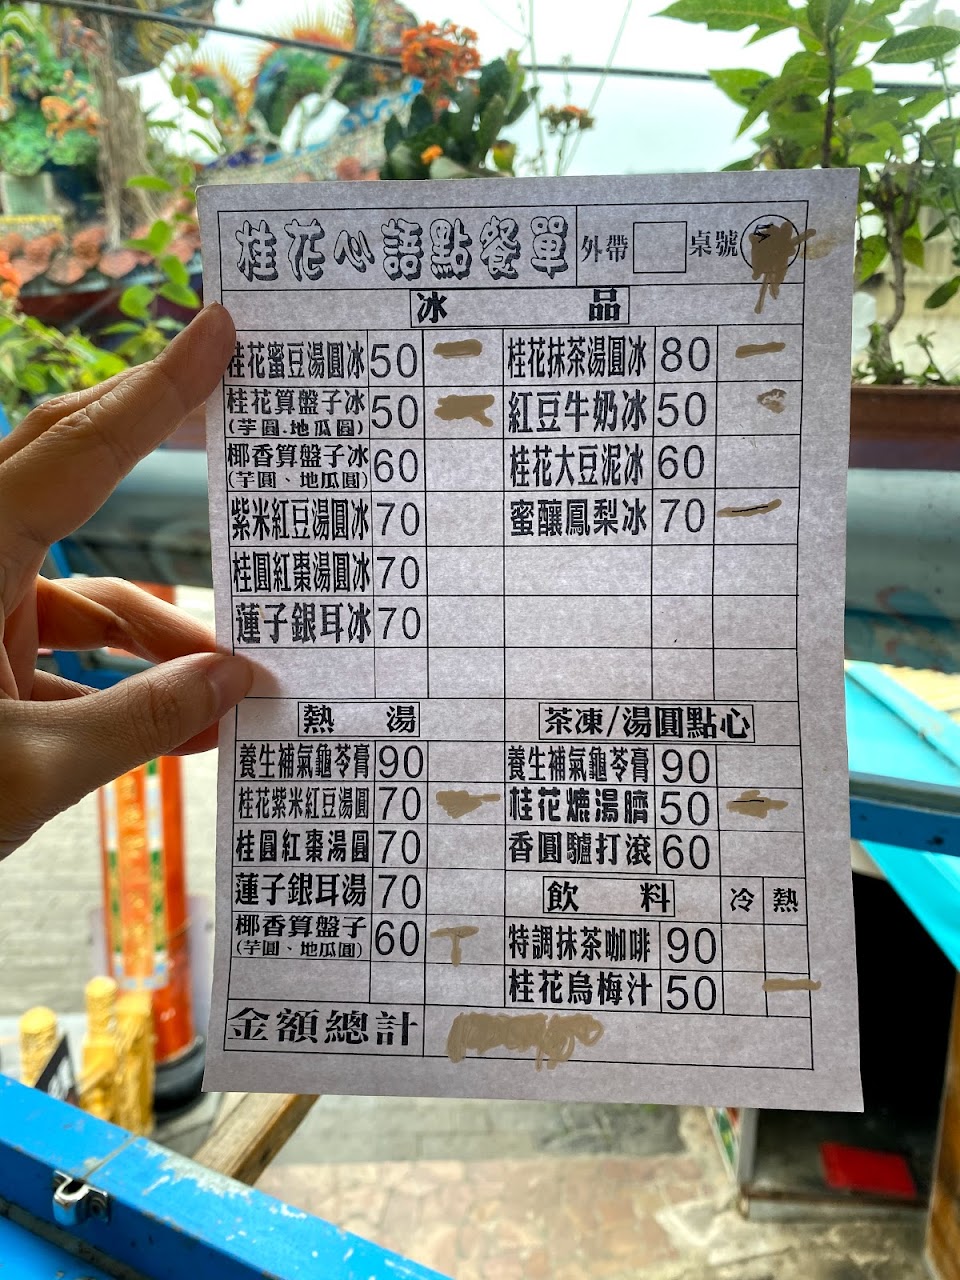 桂花心語點餐單 外帶 桌號
冰品
桂花蜜豆湯圓冰 50 桂花抹茶湯圓冰 80
桂花算盤子冰 50 紅豆牛奶冰 50
(芋圓.地瓜圓)
椰香算盤子冰 60 桂花大豆泥冰 60
(芋圓、地瓜圓)
紫米紅豆湯圓冰 70 蜜釀鳳梨冰 70
桂圓紅棗湯圓冰 70
蓮子銀耳冰 70
熱湯 茶凍/湯圓點心
養生補氣龜苓膏 90 養生補氣龜苓膏 90
桂花紫米紅豆湯圓 70 桂花燶湯臍 50
桂圓紅棗湯圓 70 香圓驢打滾 60
蓮子銀耳湯 70 飲料 冷 熱
椰香算盤子 60 特調抹茶咖啡 90
(芋圓、地瓜圓)
桂花烏梅汁 50
金額總計